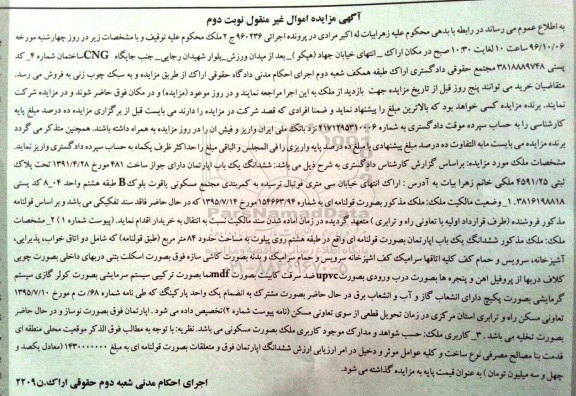 آگهی مزایده اموال غیر منقول نوبت دوم
به اطلاع عموم می رساند در رابطه با بدهی محکوم علیه زهرابیات له اکبر مرادی در پرونده اجرائی ۹۶۰۲۳۶ ج ۲ ملک محکوم علیه توقیف و با مشخصات زیر در روز چهارشنبه مورخه
۹۶/۱۰/۰۶ ساعت ۱۰ لغایت ۱۰:۳۰ صبح در مکان اراک _انتهای خیابان جهاد (هپکو )_ بعد از میدان ورزش_بلوار شهیدان رجایی_ جنب جایگاه CNG ساختمان شماره ۴_کد
پستی ۳۸۱۸۸۸۹۷۴۸ مجتمع حقوقی دادگستری اراک طبقه همکف شعبه دوم اجرای احکام مدنی دادگاه حقوقی اراک از طریق مزایده و به سبک چوب زنی به فروش می رسد.
متقاضیان خرید می توانند پنج روز قبل از تاریخ مزایده جهت بازدید از ملک به این اجرا مراجعه نمایند و در روز موعود (مزایده) و در مکان فوق حاضر شوند و در مزایده شرکت
نمایند. برنده مزایده کسی خواهد بود که بالاترین مبلغ را پیشنهاد نماید و ضمنا افرادی که قصد شرکت در مزایده را دارند می بایست قبل از برگزاری مزایده ده درصد مبلغ پایه
کارشناسی را به حساب سپرده موقت دادگستری به شماره ۲۱۷۱۲۹۵۳۱۰۰۶ نزد بانک ملی ایران واریز و فیش آن را در روز مزایده به همراه داشته باشند. همچنین متذکر می گردد
برنده مزایده می بایست مابه التفاوت ده درصد مبلغ پیشنهادی با مبلغ ده درصد پایه واریزی را فی المجلس و الباقی مبلغ را حداکثر ظرف یکماه به حساب سپرده دادگستری واریز نماید.
مشخصات ملک مورد مزایده: براساس گزارش کارشناس دادگستری به شرح ذیل می باشد: ششدانگ یک باب آپارتمان دارای جواز ساخت ۴۸۱ مورخ ۱۳۹۱/۴/۲۸ تحت پلاک
ثبتی ۴۵۹۱/۲۵ ملکی خانم زهرا بیات به آدرس : اراک انتهای خیابان سی متری فوتبال نرسیده به کمربندی مجتمع مسکونی یاقوت بلوک B طبقه هشتم واحد ۰۴_۸ کد پستی
۳۸۱۶۱۹۸۸۱۸_۱. وضعیت مالکیت ملک: ملک مذکور بصورت قولنامه ای به شماره ۱۵۴۶۶۳/۹۴ مورخ ۱۳۹۵/۷/۱۴ که در حال حاضر فاقد سند تفکیکی می باشد و بر اساس قولنامه
مذکور فروشنده (طرف قرارداد اولیه با تعاونی راه و ترابری ) متعهد گردیده در زمان آماده شدن سند مالکیت نسبت به انتقال به خریدار اقدام نماید. (پیوست شماره ۱) ۲_مشخصات
ملک: ملک مذکور ششدانگ یک باب آپارتمان بصورت قولنامه ای واقع در طبقه هشتم روی پیلوت به مساحت حدود ۸۴ متر مربع (طبق قولنامه) که شامل دو اتاق خواب، پذیرایی،
آشپزخانه سرویس و حمام کف کلیه اتاقها سرامیک کف آشپزخانه سرویس و حمام سرامیک و بدنه بصورت کاشی سازه فوق بصورت اسکلت بتنی دربهای داخلی بصورت چوبی
کلاف دربها از پروفیل آهن و پنجره ها بصورت درب ورودی بصورت upvc ضد سرقت کابینت بصورت mdf نما بصورت ترکیبی سیستم سرمایشی بصورت کولر گازی سیستم
گرمایشی بصورت پکیج دارای انشعاب گاز و آب و انشعاب برق در حال حاضر بصورت مشترک به انضمام یک واحد پارکینگ که طی نامه شماره ۶۸/ت م مورخ ۱۳۹۵/۷/۱۰
تعاونی مسکن راه و ترابری استان مرکزی در زمان تحویل قطعی از سوی تعاونی مسکن (نامه پیوست شماره ۲) تخصیص داده می شود. آپارتمان فوق بصورت نوساز و در حال حاضر
بصورت تخلیه می باشد. ۳_ کاربری ملک: حسب شواهد و مدارک موجود کاربری ملک بصورت مسکونی می باشد. نظریه: با توجه به مطالب فوق الذکر موقعیت محلی منطقه ای
قدمت بنا مصالح مصرفی نوع ساخت و کلیه عوامل موثر و دخیل در امر ارزیابی ارزش ششدانگ آپارتمان فوق و متعلقات بصورت قولنامه ای به مبلغ ۱۴۳۰۰۰۰۰۰۰ (معادل یکصد و
چهل و سه میلیون تومان ) به عنوان قیمت پایه به مزایده گذاشته می شود.
اجرای احکام مدنی شعبه دوم حقوقی اراک.ن۲۲۰۹